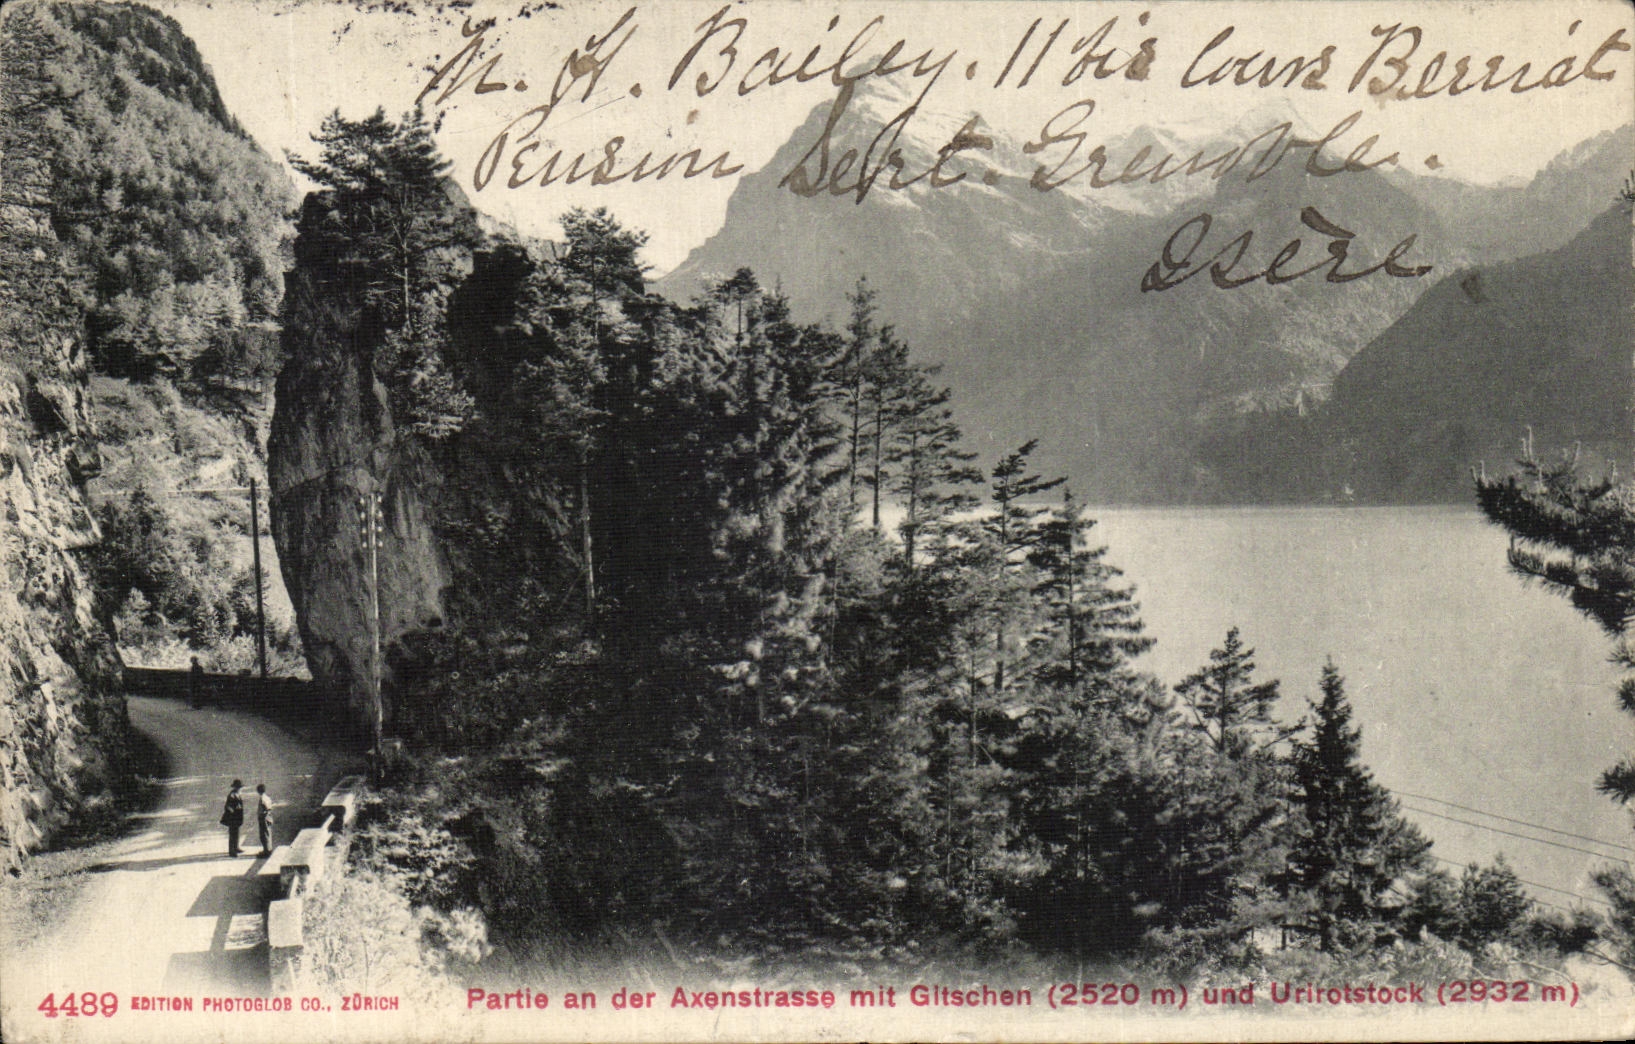 M. H. Bailey. 11 bis Cours Berriat
Pension Sert. Grenoble.
Isère.
4489 EDITION PHOTOGLOB CO., ZÜRICH Partie an der Axenstrasse mit Gitschen (2520 m) und Urirotstock (2932 m)